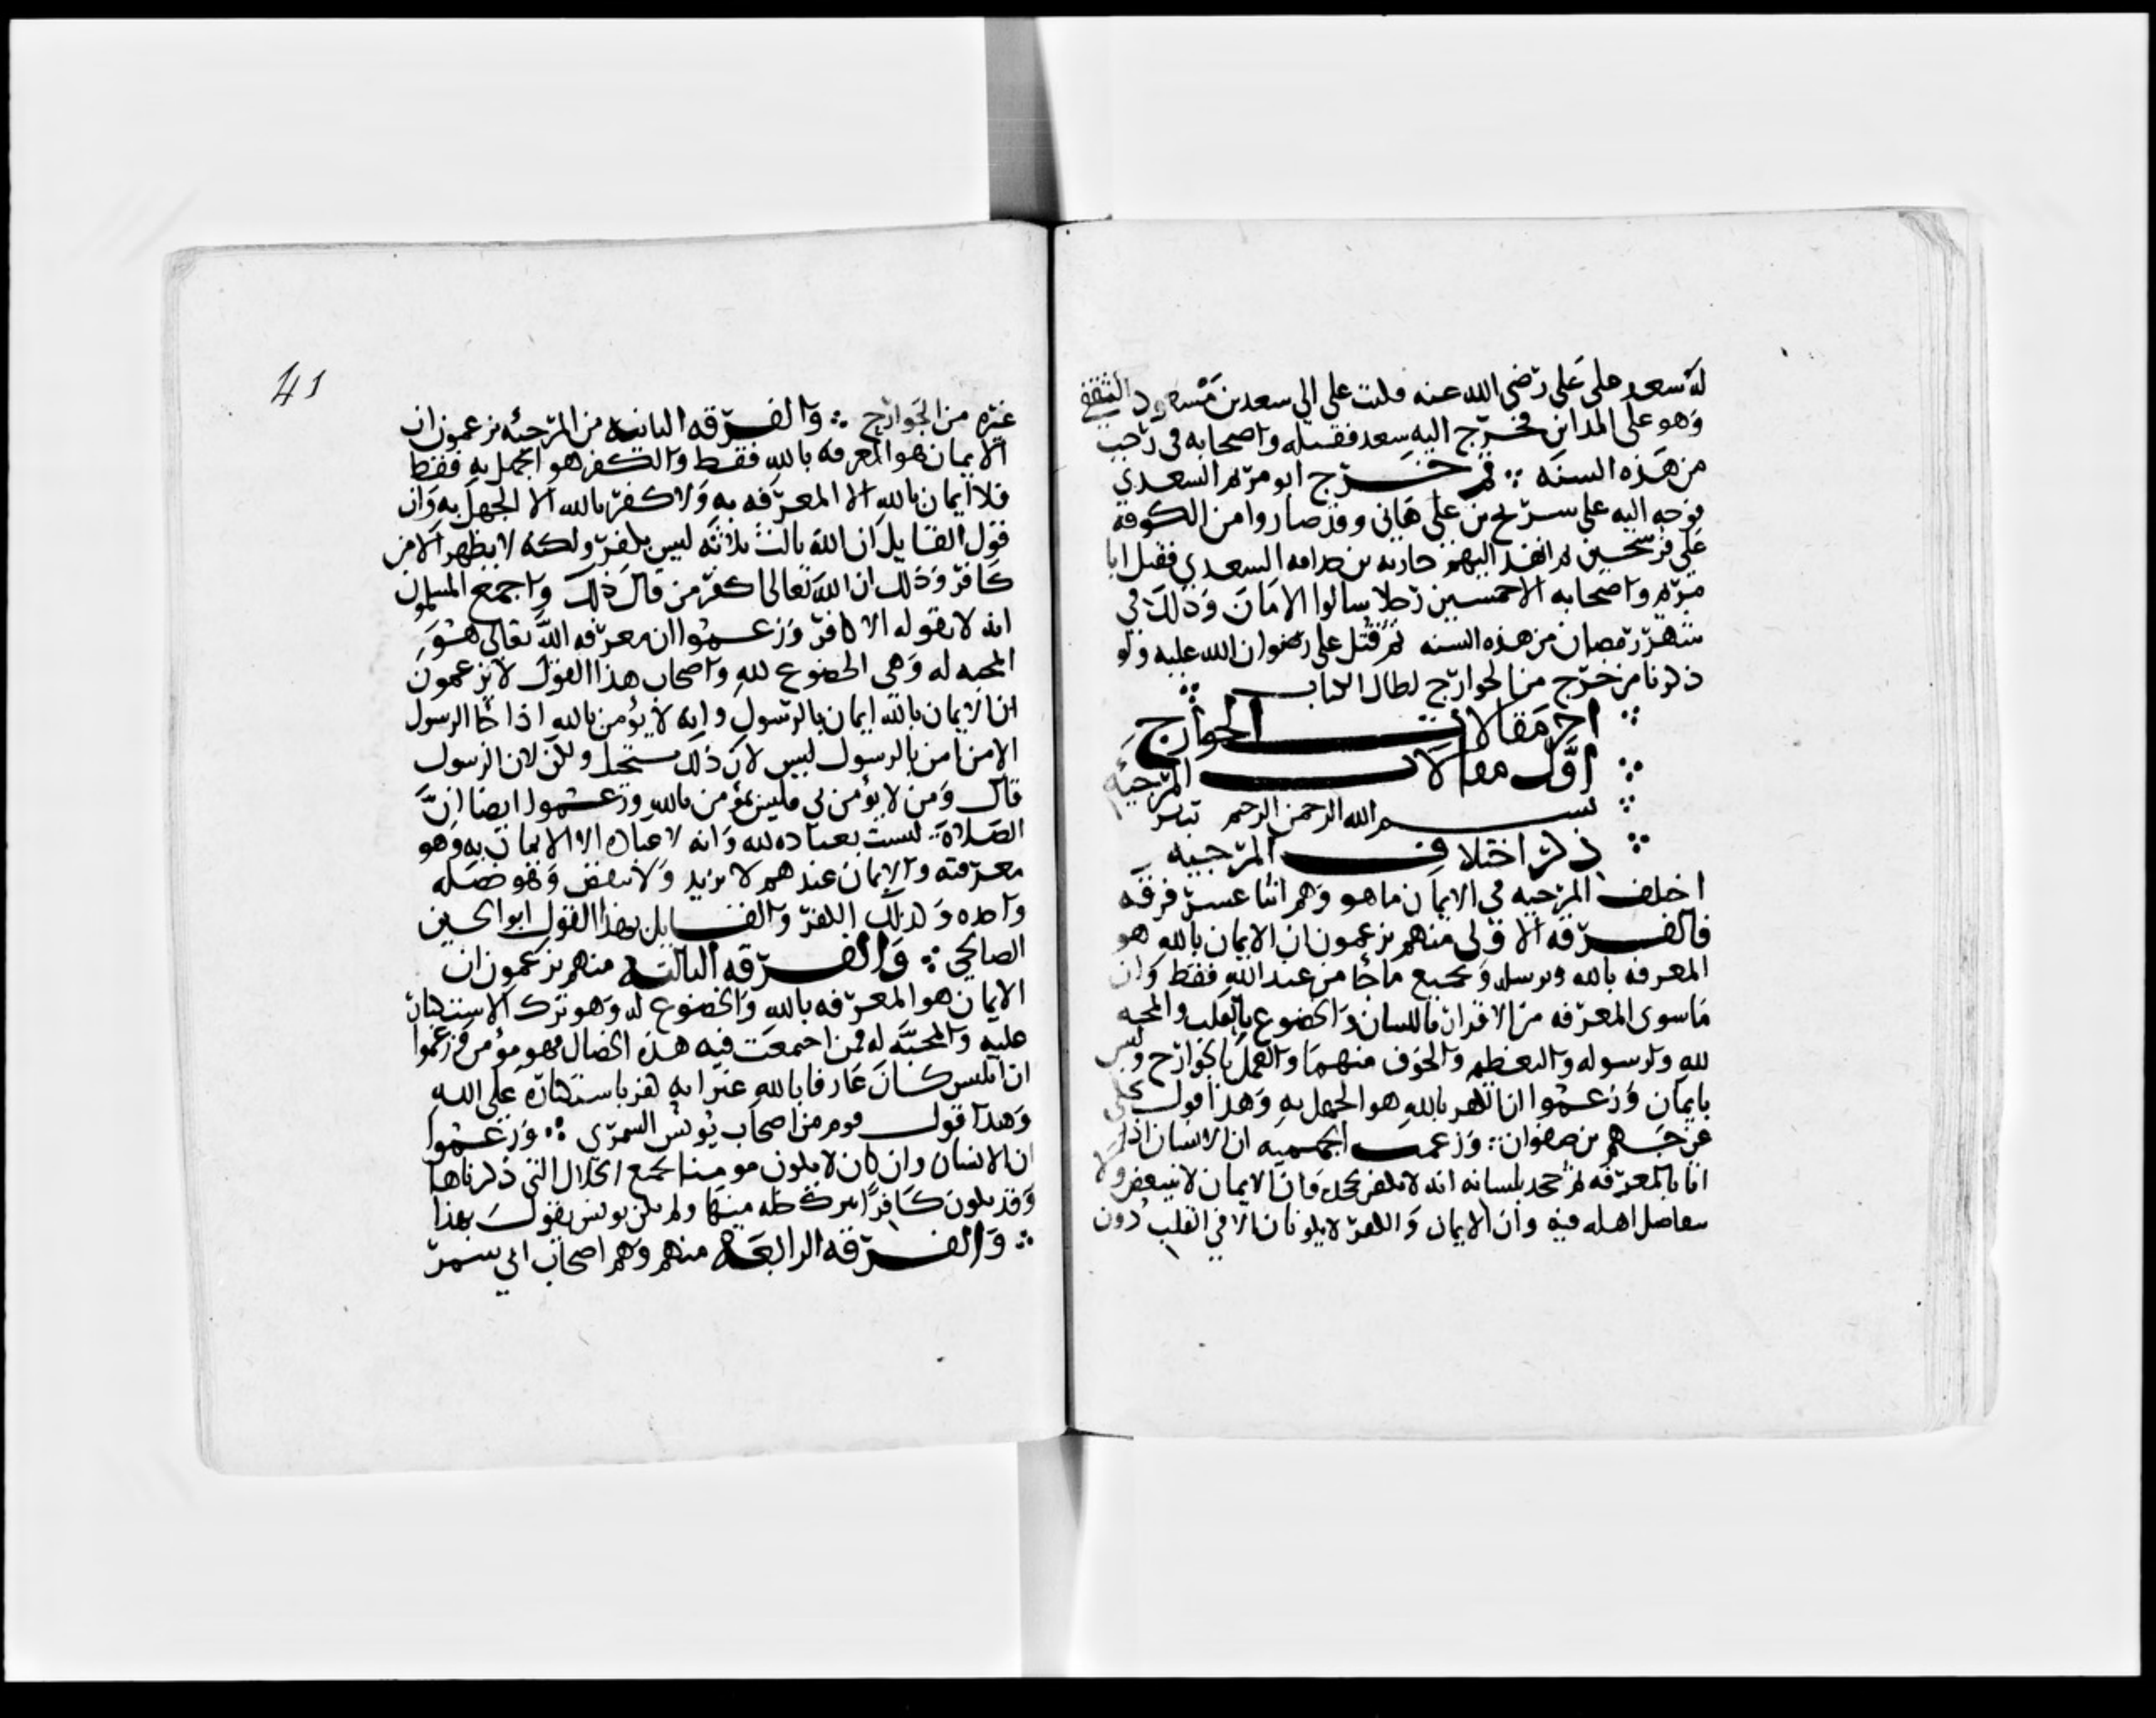 له سعد على علي رضي الله عنه فكتب علي الى سعد بن مسعود الثقفي
وهو على المداين فخرج اليه سعد فقتله واصحابه في رجب
من هذه السنه ثم خرج ابو مريم السعدي
فوجه اليه علي سريح بن هاني وقد صاروا من الكوفة
على فرسخين ثم انفذ اليهم جاريه بن قدامه السعدي فقتل ابا
مريم واصحابه الا خمسين رجلا سالوا الامان وذلك في
شهر رمضان من هذه السنه ثم قتل علي رضوان الله عليه ولو
ذكرنا من خرج من الخوارج لطال الكتاب
اخر مقالات الخوارج
اول مقالات المرجيه
بسم الله الرحمن الرحيم
ذكر اختلاف المرجيه
اختلف المرجيه في الايمان ما هو وهم اثنا عشر فرقه
فالفرقه الاولى منهم يزعمون ان الايمان بالله هو
المعرفه بالله وبرسله وبجميع ما جا من عند الله فقط وان
ما سوى المعرفه من الاقرار باللسان والخضوع بالقلب والمحبه
لله ولرسوله والتعظيم والخوف منهما والعمل بالجوارح وليس
بايمان وزعموا ان الكفر بالله هو الجهل به وهذا قول يحكى
عن جهم بن صفوان وزعمت الجهميه ان الانسان اذا
اتا بالمعرفه ثم جحد بلسانه انه لا يكفر بجحده وان الايمان لا يتبعض ولا
يتفاضل اهله فيه وان الايمان والكفر لا يكونان الا في القلب دون
41
غيره من الجوارح والفرقه الثانيه من المرجئه يزعمون ان
الايمان هو المعرفه بالله فقط والكفر هو الجهل به فقط
فلا ايمان بالله الا المعرفه به ولا كفر بالله الا الجهل به وان
قول القايل ان الله ثالث ثلاثه ليس بكفر ولكنه لا يظهر الا من
كافر وذلك ان الله تعالى اكفر من قال ذلك واجمع المسلمون
انه لا يقوله الا كافر وزعموا ان معرفه الله تعالى هو
المحبه له وهي الخضوع لله واصحاب هذا القول لا يزعمون
ان الايمان بالله ايمان بالرسول وانه لا يؤمن بالله اذا جا الرسول
الا من امن بالرسول ليس لان ذلك مستحيل ولكن لان الرسول
قال ومن لا يؤمن بي فليس بمؤمن بالله وزعموا ايضا ان
الصلاة ليست بعباده لله وانه لا عباده الا الايمان به وهو
معرفته والايمان عندهم لا يزيد ولا ينقص وهو خصله
واحده وكذلك الكفر والقايل بهذا القول ابو الحسين
الصالحي والفرقه الثالثه منهم يزعمون ان
الايمان هو المعرفه بالله والخضوع له وهو ترك الاستكبار
عليه والمحبه له فمن اجتمعت فيه هذه الخصال فهو مؤمن وزعموا
ان ابليس كان عارفا بالله غير انه كفر باستكباره على الله
وهذا قول قوم من اصحاب يونس السمري وزعموا
ان الانسان وان كان لا يكون مومنا الا بجميع الخلال التي ذكرناها
وقد يكون كافرا بترك خله منها ولم يكن يونس يقول بهذا
والفرقه الرابعه منهم وهم اصحاب ابي سمر